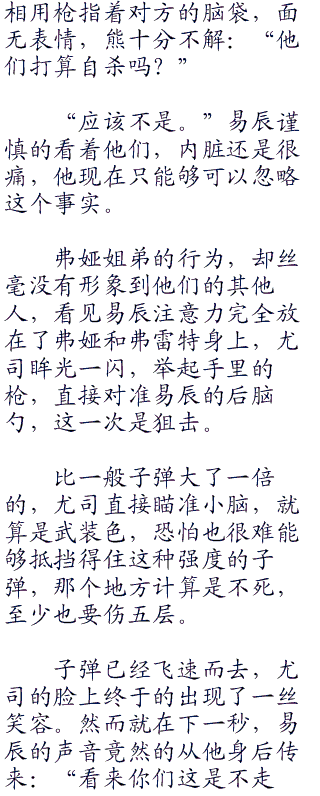 相用枪指着对方的脑袋，面
无表情，熊十分不解：“他
们打算自杀吗？”
“应该不是。”易辰谨
慎的看着他们，内脏还是很
痛，他现在只能够可以忽略
这个事实。
弗娅姐弟的行为，却丝
毫没有形象到他们的其他
人，看见易辰注意力完全放
在了弗娅和弗雷特身上，尤
司眸光一闪，举起手里的
枪，直接对准易辰的后脑
勺，这一次是狙击。
比一般子弹大了一倍
的，尤司直接瞄准小脑，就
算是武装色，恐怕也很难能
够抵挡得住这种强度的子
弹，那个地方计算是不死，
至少也要伤五层。
子弹已经飞速而去，尤
司的脸上终于的出现了一丝
笑容。然而就在下一秒，易
辰的声音竟然的从他身后传
来：“看来你们这是不走